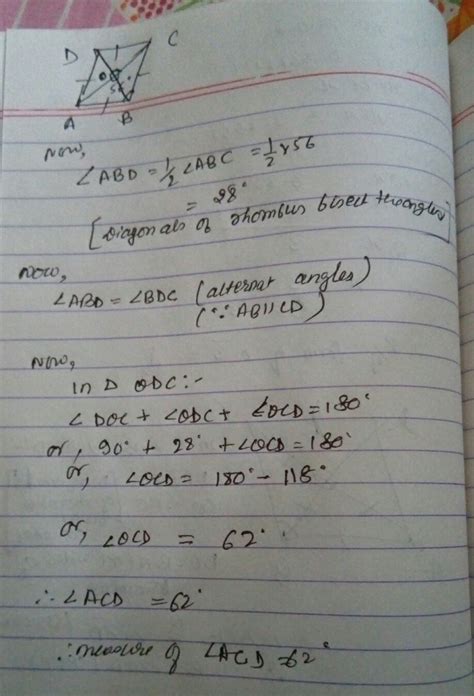 D C
56
A B
Now,
∠ABD = 1/2 ∠ABC = 1/2 × 56
= 28°
[Diagonals of rhombus bisect the angles]
Now,
∠ABD = ∠BDC (alternat angles)
(∵ AB || CD)
Now,
In D ODC:-
∠DOC + ∠ODC + ∠OCD = 180°
or, 90° + 28° + ∠OCD = 180°
or, ∠OCD = 180° - 118°
or, ∠OCD = 62°
∴ ∠ACD = 62°
∴ measure of ∠ACD = 62°